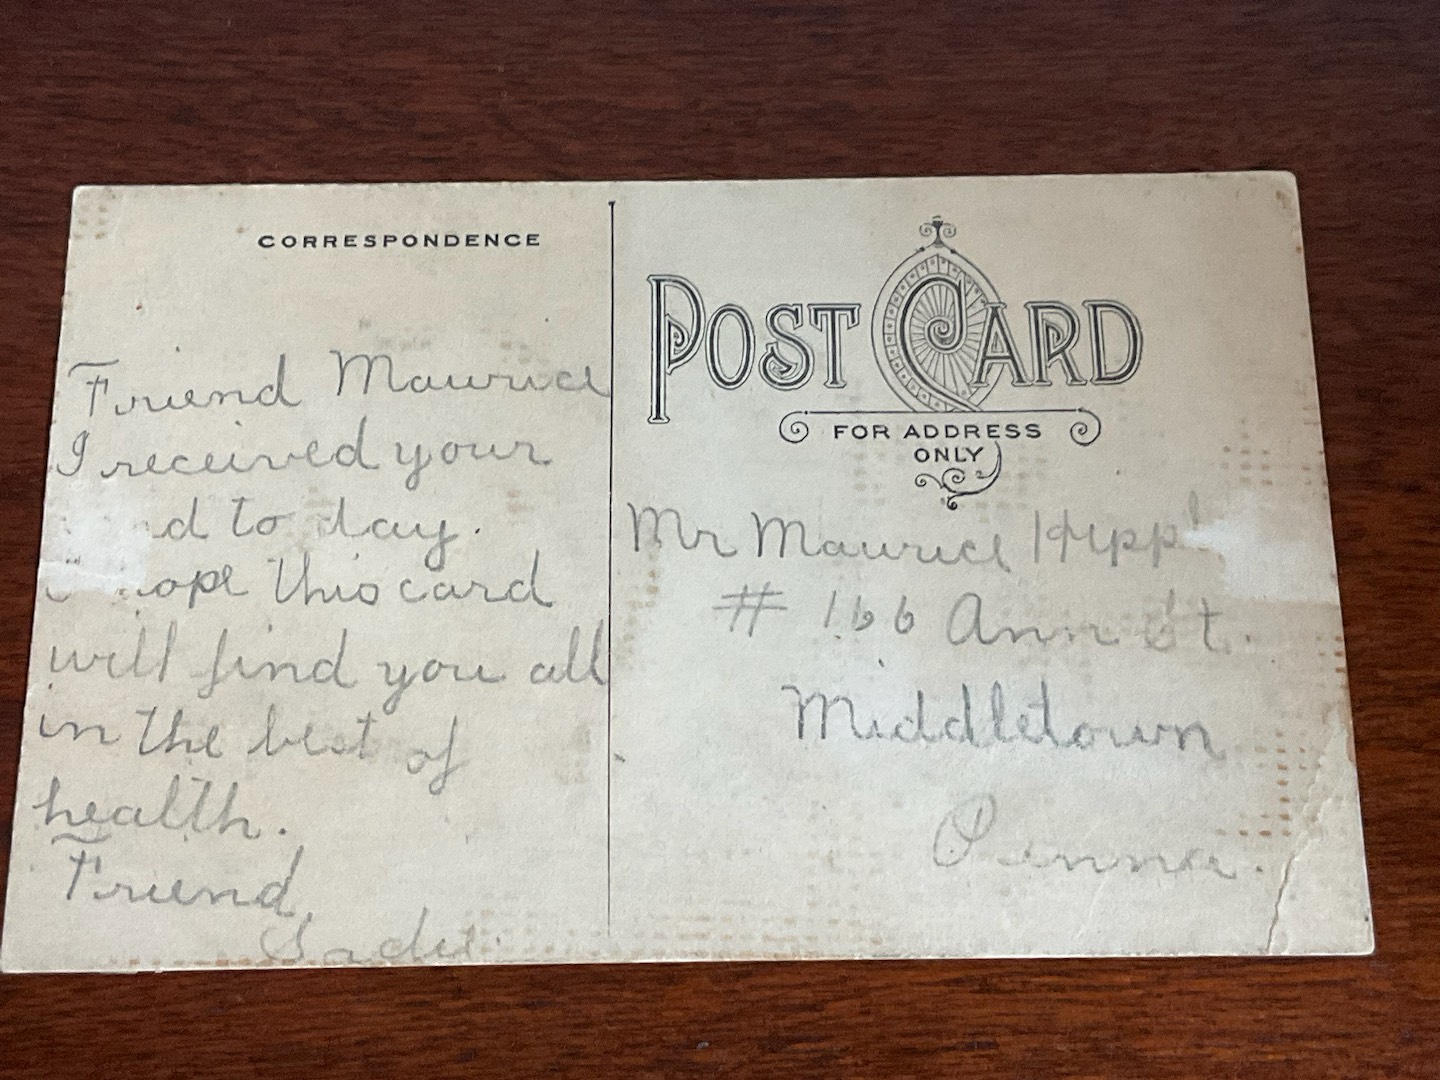 CORRESPONDENCE
Friend Maurice
I received your
d to day.
ope this card
will find you all
in the best of
health.
Friend,
Sadie.
POST CARD
FOR ADDRESS
ONLY
Mr Maurice
# 166 Ann St.
Middletown
Penna.